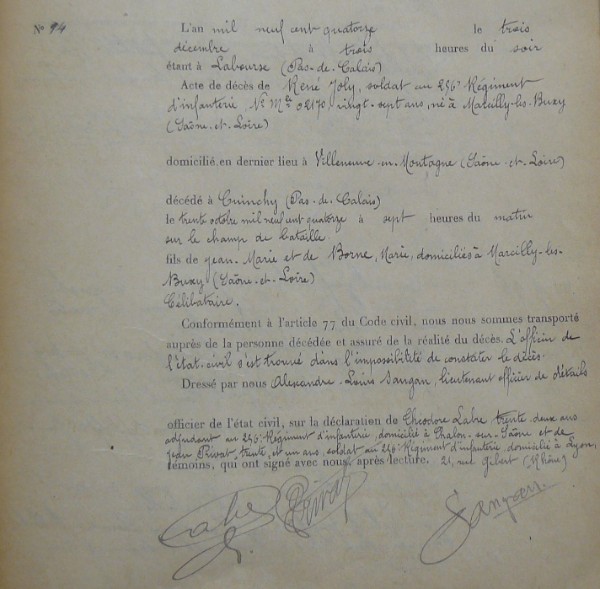 N° 94
L'an mil neuf cent quatorze le trois
décembre à trois heures du soir
étant à Labourse (Pas-de-Calais)
Acte de décès de René Joly, soldat au 256e Régiment
d'infanterie N° Mle 02170 vingt-sept ans, né à Marcilly-les-Buxy
(Saône-et-Loire)
domicilié en dernier lieu à Villeneuve-en-Montagne (Saône-et-Loire)
décédé à Cuinchy (Pas-de-Calais)
le trente octobre mil neuf cent quatorze à sept heures du matin
sur le champ de bataille
fils de Jean-Marie et de Borne, Marie, domiciliés à Marcilly-les-
Buxy (Saône-et-Loire)
Célibataire.
Conformément à l'article 77 du Code civil, nous nous sommes transporté
auprès de la personne décédée et assuré de la réalité du décès. L'officier de
l'état-civil s'est trouvé dans l'impossibilité de constater le décès.
Dressé par nous Alexandre-Louis Sangan, lieutenant officier de détails
officier de l'état civil, sur la déclaration de Théodore Labre trente-deux ans
adjudant au 256e Régiment d'infanterie, domicilié à Chalon-sur-Saône et de
Jean Privat, trente et un ans, soldat au 256e Régiment d'infanterie, domicilié à Lyon,
témoins, qui ont signé avec nous après lecture. 21, rue Gibert (Rhône)
Labre Privat Sangan